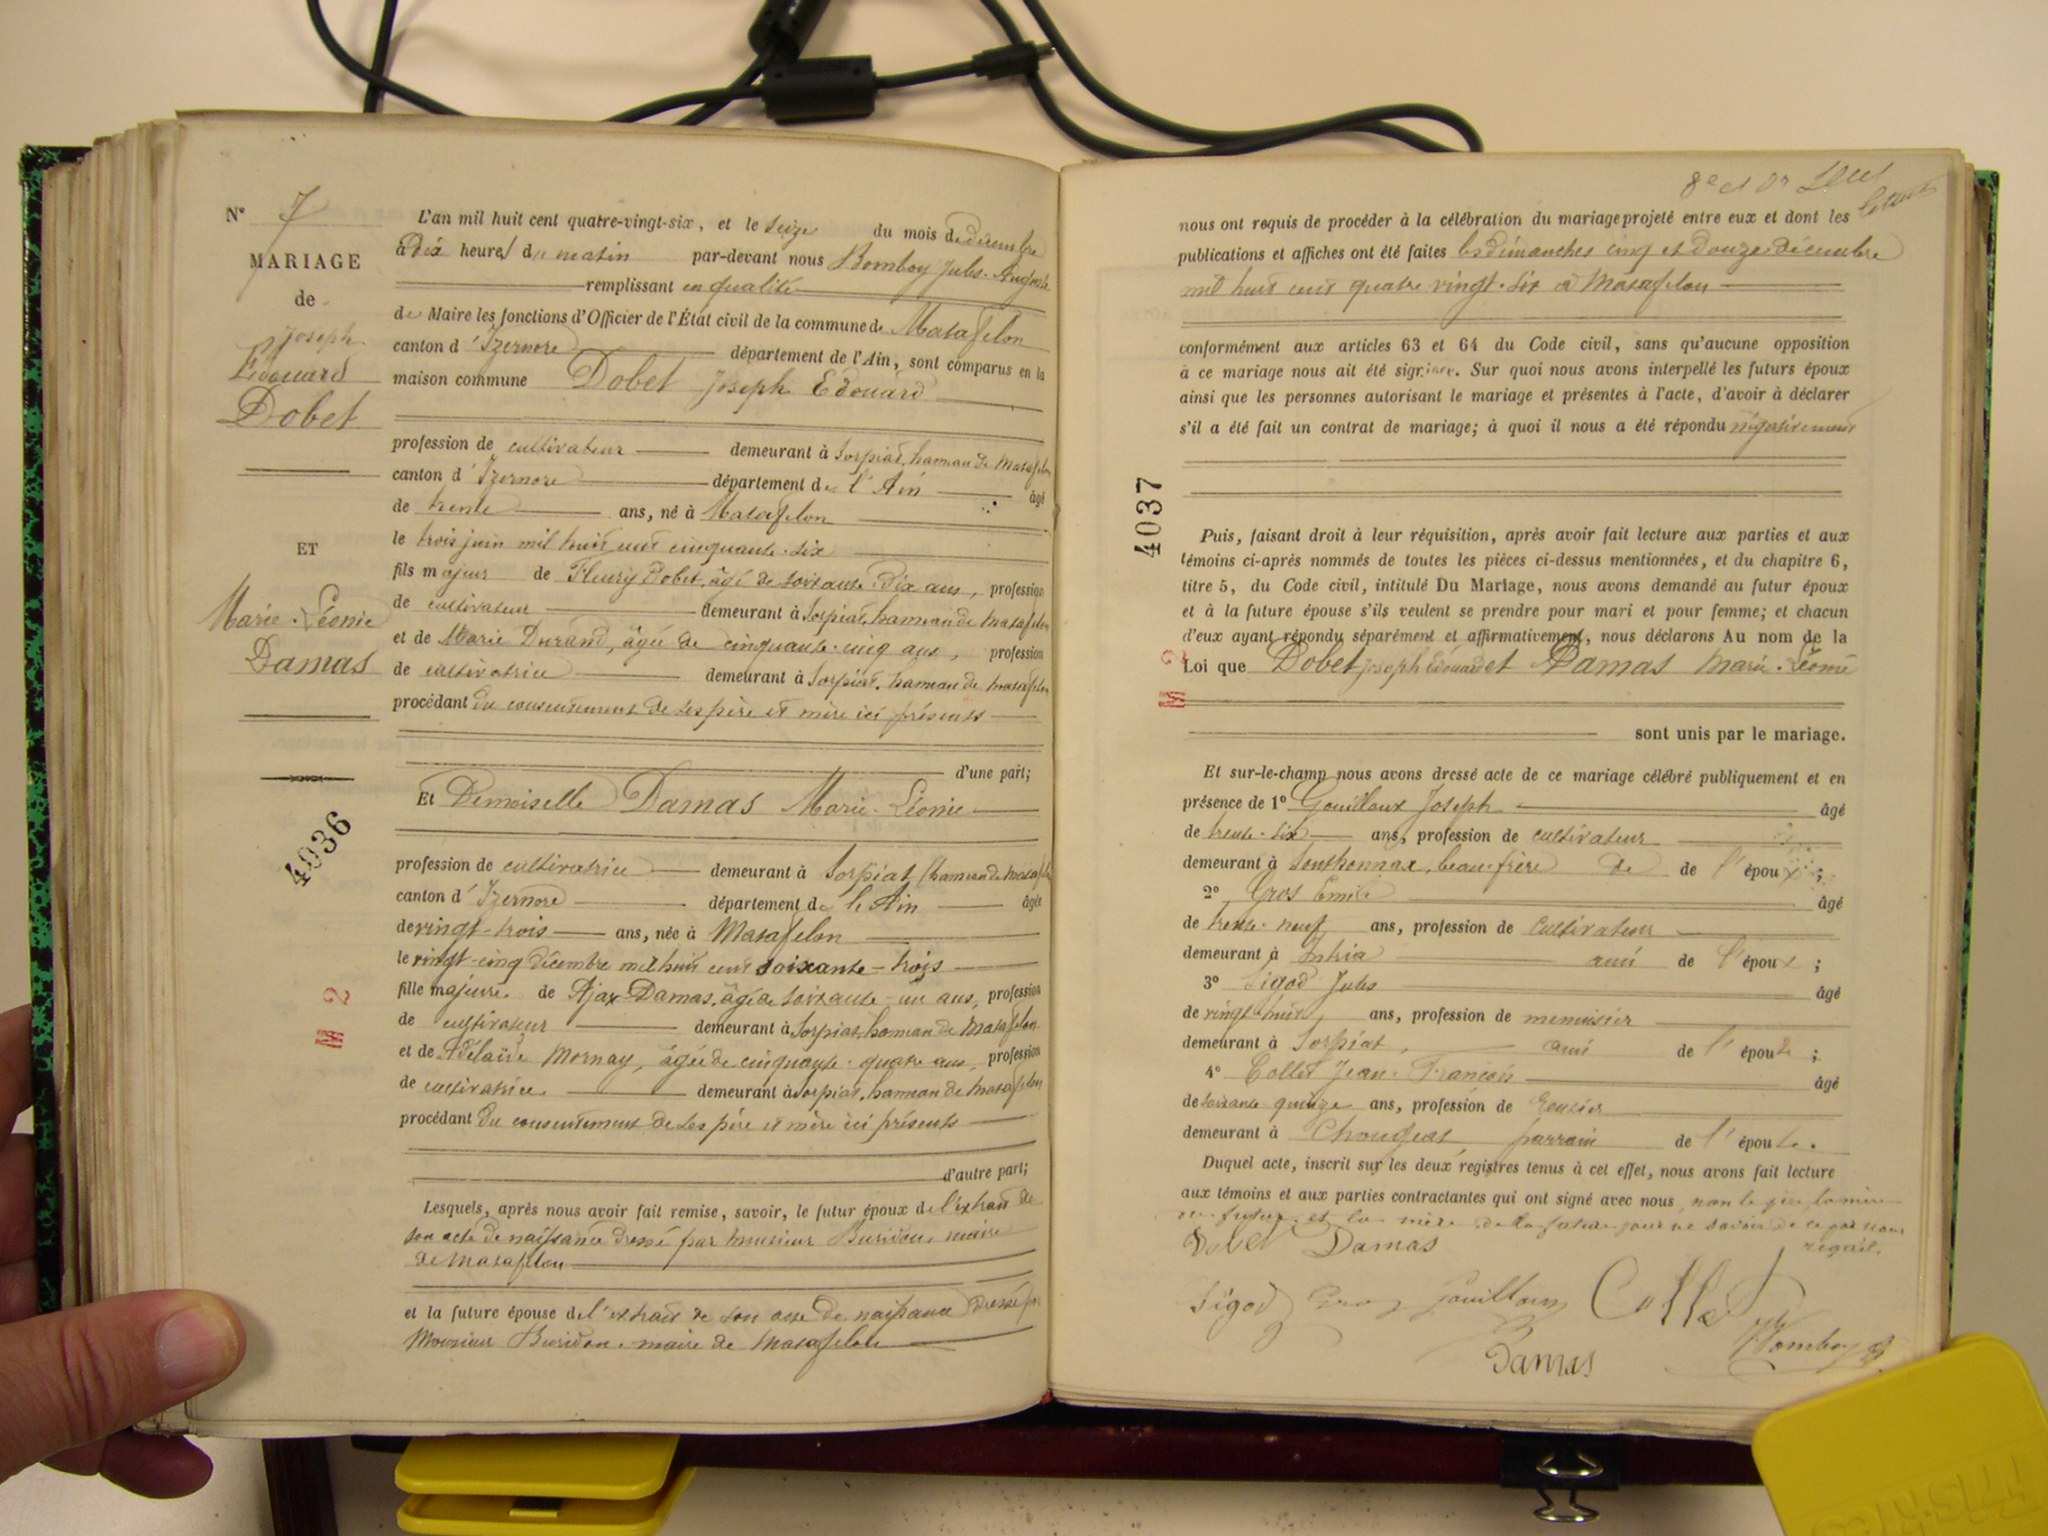 N° 7
MARIAGE
de
Joseph
Édouard
Dobet
ET
Marie-Léonie
Damas
4036
M 2
L'an mil huit cent quatre-vingt-six, et le seize du mois de décembre
à Dix heures du matin par-devant nous Bomboy Jules-Auguste
remplissant en qualité
de Maire les fonctions d'Officier de l'État civil de la commune de Matafelon
canton d'Izernore département de l'Ain, sont comparus en la
maison commune Dobet Joseph Édouard
profession de cultivateur demeurant à Sorpiat, hameau de Matafelon
canton d'Izernore département de l'Ain âgé
de trente ans, né à Matafelon
le trois juin mil huit cent cinquante-six
fils majeur de Fleury Dobet, âgé de soixante Dix ans, profession
de cultivateur demeurant à Sorpiat, hameau de Matafelon
et de Marie Durand, âgée de cinquante-cinq ans, profession
de cultivatrice demeurant à Sorpiat, hameau de Matafelon
procédant du consentement de ses père et mère ici présents
d'une part;
Et Demoiselle Damas Marie-Léonie
profession de cultivatrice demeurant à Sorpiat (hameau de Matafelon
canton d'Izernore département de l'Ain âgée
de vingt-trois ans, née à Matafelon
le vingt-cinq décembre mil huit cent soixante-trois
fille majeure de Ajax Damas, âgé de soixante-un ans, profession
de cultivateur demeurant à Sorpiat, hameau de Matafelon
et de Adélaïde Mornay, âgée de cinquante-quatre ans, profession
de cultivatrice demeurant à Sorpiat, hameau de Matafelon
procédant du consentement de ses père et mère ici présents
d'autre part;
Lesquels, après nous avoir fait remise, savoir, le futur époux de l'extrait de
son acte de naissance dressé par monsieur Buridon, maire
de Matafelon
et la future épouse de l'extrait de son acte de naissance dressé par
Monsieur Buridon, maire de Matafelon
8e et
nous ont requis de procéder à la célébration du mariage projeté entre eux et dont les
publications et affiches ont été faites les dimanches cinq et douze décembre
mil huit cent quatre vingt-six à Matafelon
conformément aux articles 63 et 64 du Code civil, sans qu'aucune opposition
à ce mariage nous ait été signifiée. Sur quoi nous avons interpellé les futurs époux
ainsi que les personnes autorisant le mariage et présentes à l'acte, d'avoir à déclarer
s'il a été fait un contrat de mariage; à quoi il nous a été répondu négativement
4037
Puis, faisant droit à leur réquisition, après avoir fait lecture aux parties et aux
témoins ci-après nommés de toutes les pièces ci-dessus mentionnées, et du chapitre 6,
titre 5, du Code civil, intitulé Du Mariage, nous avons demandé au futur époux
et à la future épouse s'ils veulent se prendre pour mari et pour femme; et chacun
d'eux ayant répondu séparément et affirmativement, nous déclarons Au nom de la
Loi que Dobet Joseph Édouard et Damas Marie-Léonie
M 2
sont unis par le mariage.
Et sur-le-champ nous avons dressé acte de ce mariage célébré publiquement et en
présence de 1° Gouilloux Joseph âgé
de trente-six ans, profession de cultivateur
demeurant à Sonthonnax, beau-frère de de l'époux;
2° Gros Emile âgé
de trente-neuf ans, profession de cultivateur
demeurant à Intria ami de l'époux;
3° Sigod Jules âgé
de vingt-huit ans, profession de menuisier
demeurant à Sorpiat, ami de l'épouse;
4° Collet Jean-François âgé
de soixante quinze ans, profession de Rentier
demeurant à Chougeat parrain de l'épouse.
Duquel acte, inscrit sur les deux registres tenus à cet effet, nous avons fait lecture
aux témoins et aux parties contractantes qui ont signé avec nous, non le père la mère
du futur et la mère de la future pour ne savoir de ce par nous
requis.
Dobet Damas
Sigod Gros Gouilloux Collet
Damas Bomboy